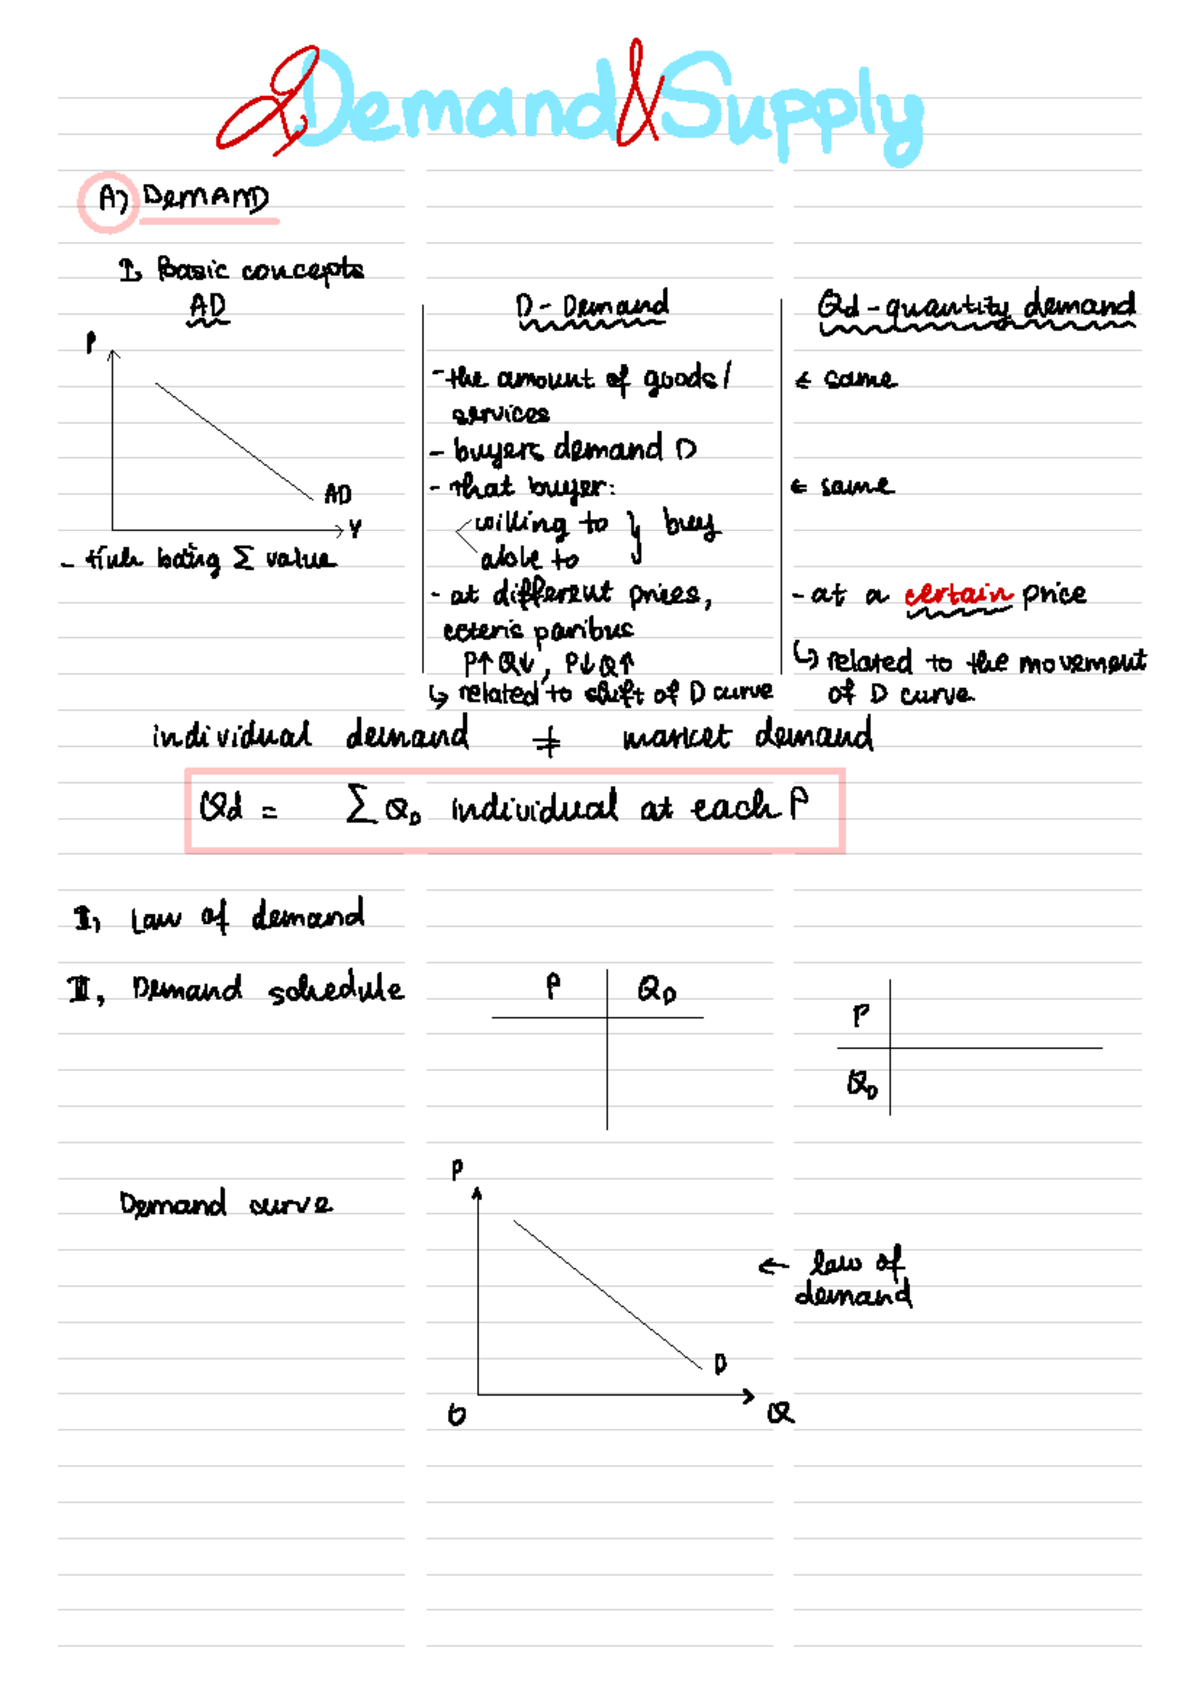 2, Demand & Supply
A) DEMAND
I, Basic concepts
AD
P
AD
Y
- tính bằng Σ value
D - Demand
- the amount of goods/
services
- buyers demand D
- that buyer:
willing to } buy
able to
- at different prices,
ceteris paribus
P↑ Q↓, P↓ Q↑
↳ related to shift of D curve
Qd - quantity demand
← same
← same
- at a certain price
↳ related to the movement
of D curve
individual demand ≠ market demand
Qd = Σ QD individual at each P
II, Law of demand
III, Demand schedule
P QD
P
QD
Demand curve
P
D
O Q
← law of
demand